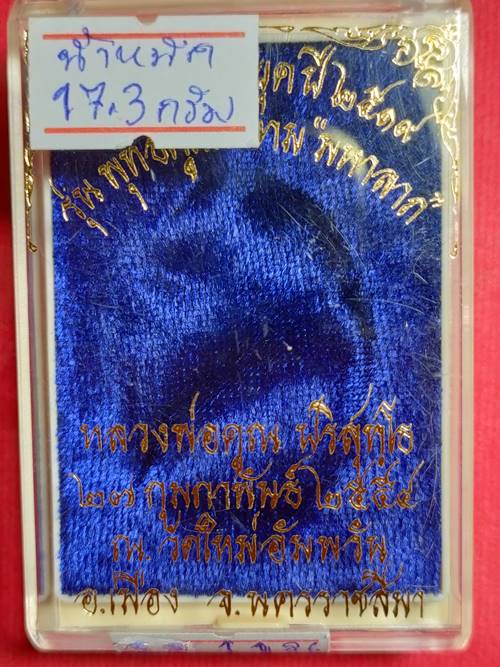 น้ำหนัก
17.3 กรัม
ยุคปี ๒๕๑๙
รุ่น พุทธคูณ "มหาลาภ"
หลวงพ่อคูณ ปริสุทฺโธ
๒๗ กุมภาพันธ์ ๒๕๕๔
ณ. วัดใหม่อัมพวัน
อ.เมือง จ.นครราชสีมา